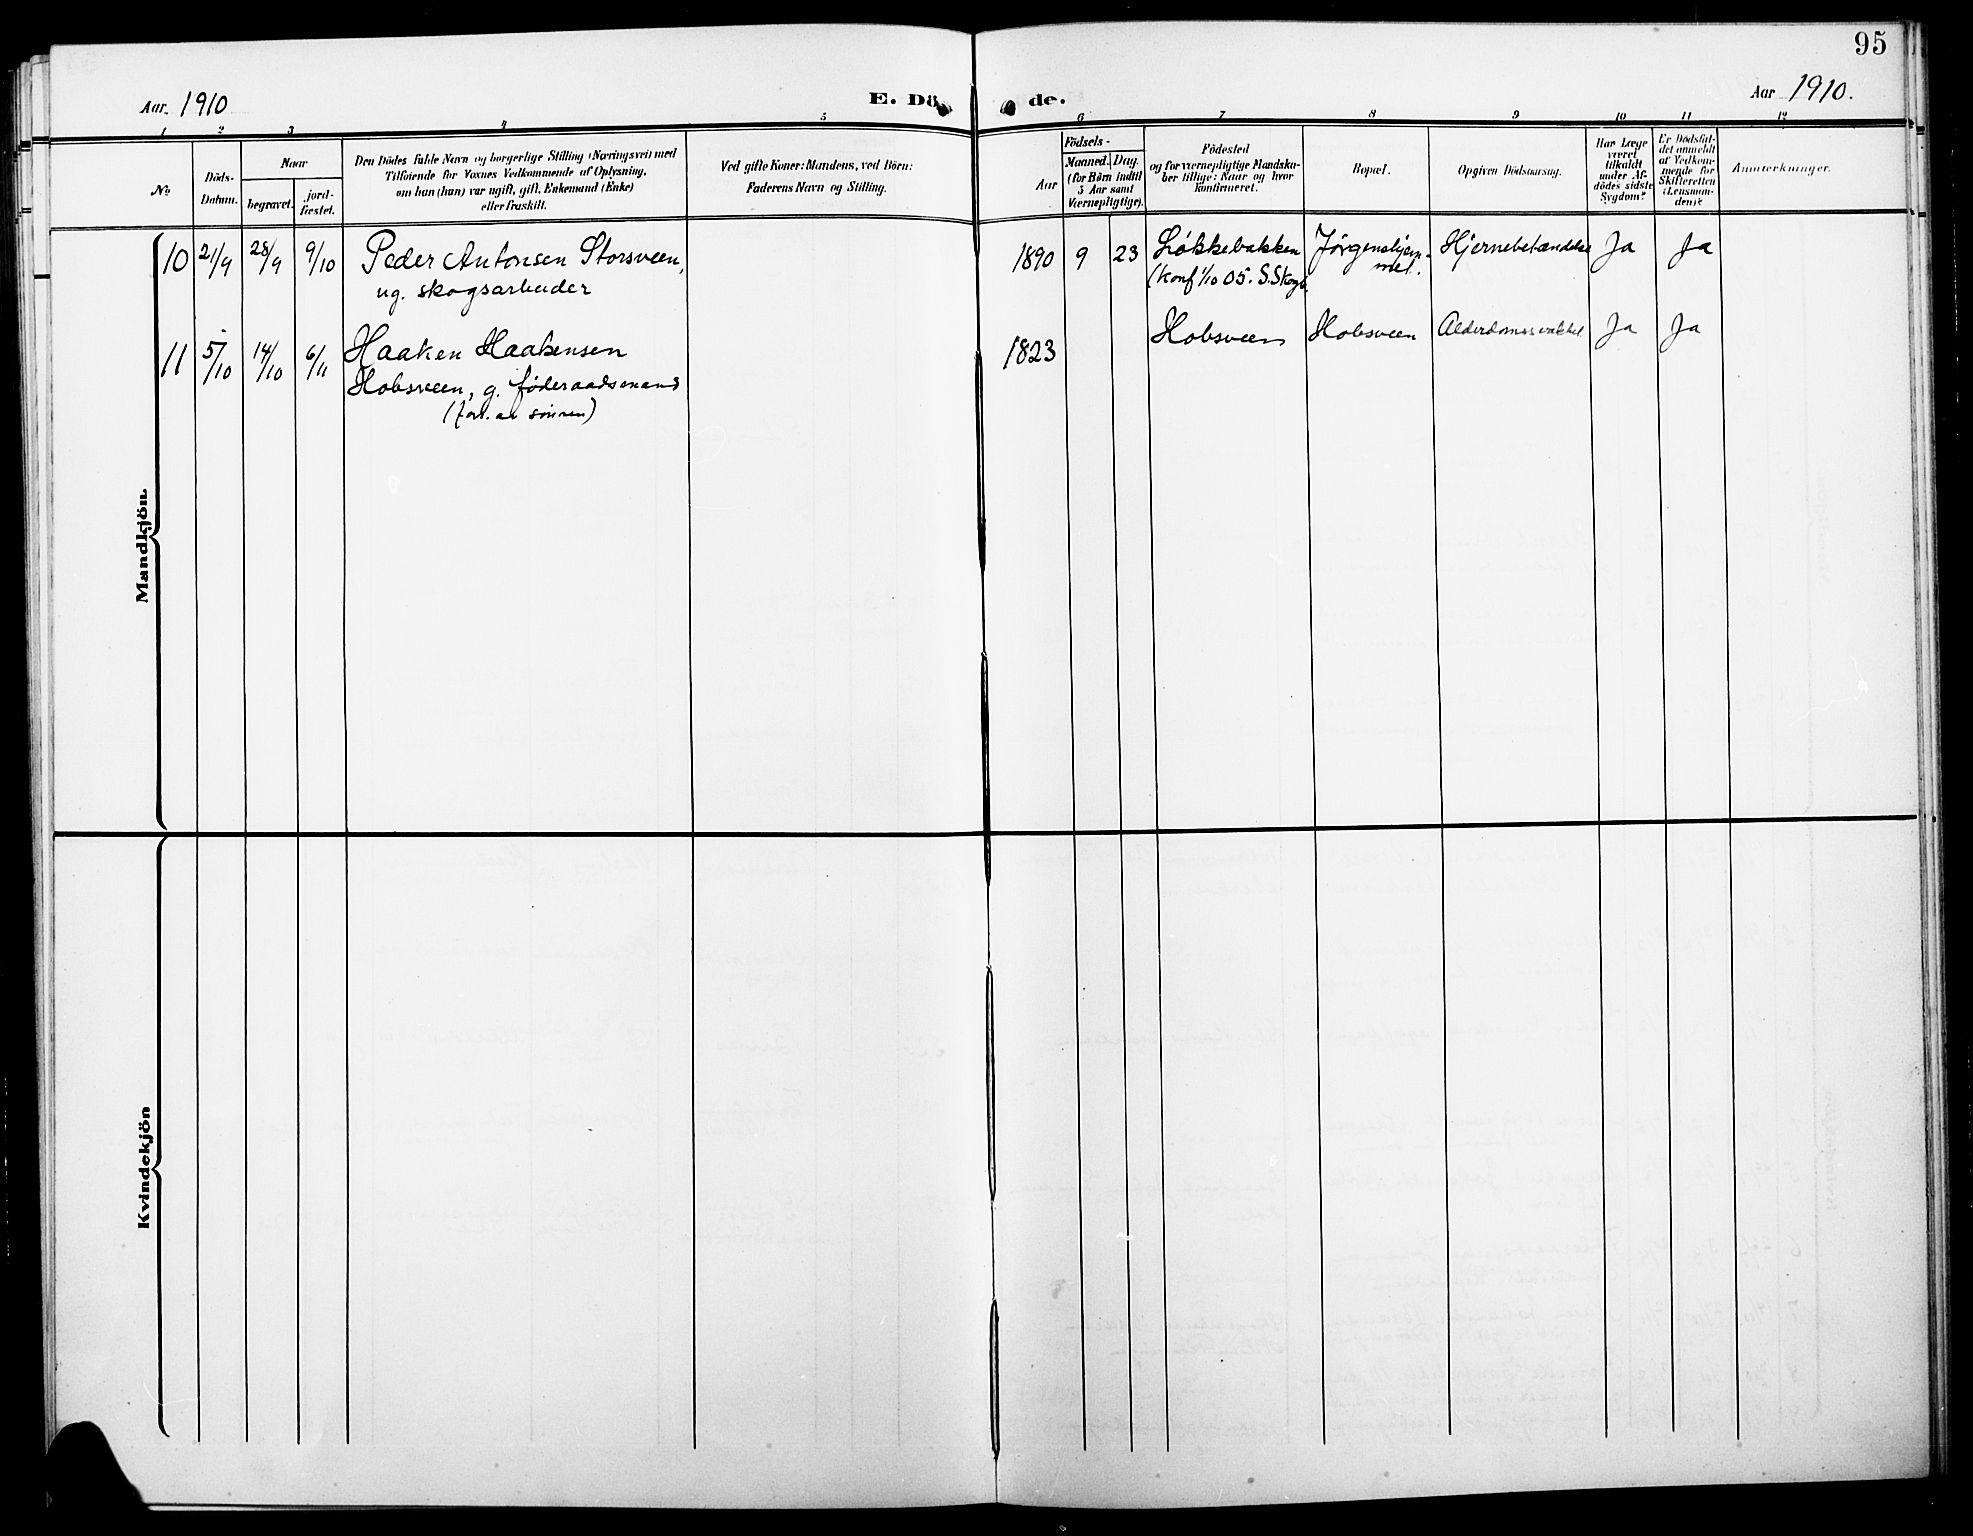 95
Aar 1910
E. Döde.
Aar 1910.
1 2 3 4 5 6 7 8 9 10 11 12
No
Döds-
Datum.
Naar
begravet.
jord-
fæstet.
Den Dödes fulde Navn og borgerlige Stilling (Næringsvei) med
Tilföiende for Voxnes Vedkommende af Oplysning,
om han (hun) var ugift, gift, Enkemand (Enke)
eller fraskilt.
Ved gifte Koner: Mandens, ved Börn:
Faderens Navn og Stilling.
Födsels-
Aar
Maaned. Dag.
(for Börn indtil
5 Aar samt
Værnepligtige).
Födested
og for værnepligtige Mandska-
ber tillige: Naar og hvor
konfirmeret.
Bopæl.
Opgiven Dödsaarsag.
Har Læge
været
tilkaldt
under Af-
dödes sidste
Sygdom?
Er Dödsfal-
det anmeldt
af Vedkom-
mende for
Skifteretten
(Lensman-
den)?
Anmærkninger.
Mandkjön.
10 21/9 28/9 9/10 Peder Antonsen Storsveen, 1890 9 23 Løkkebakken Jørgenshjem- Hjernebetændelse Ja Ja
ug. skogsarbeider (Konf 1/10 05. S. Skogb. met.
11 5/10 14/10 6/11 Haaken Haakensen 1823 Hobsveen Hobsveen Alderdomssvakhet Ja Ja
Hobsveen, g. føderaadsmand
(forl. av sønnen)
Kvindekjön